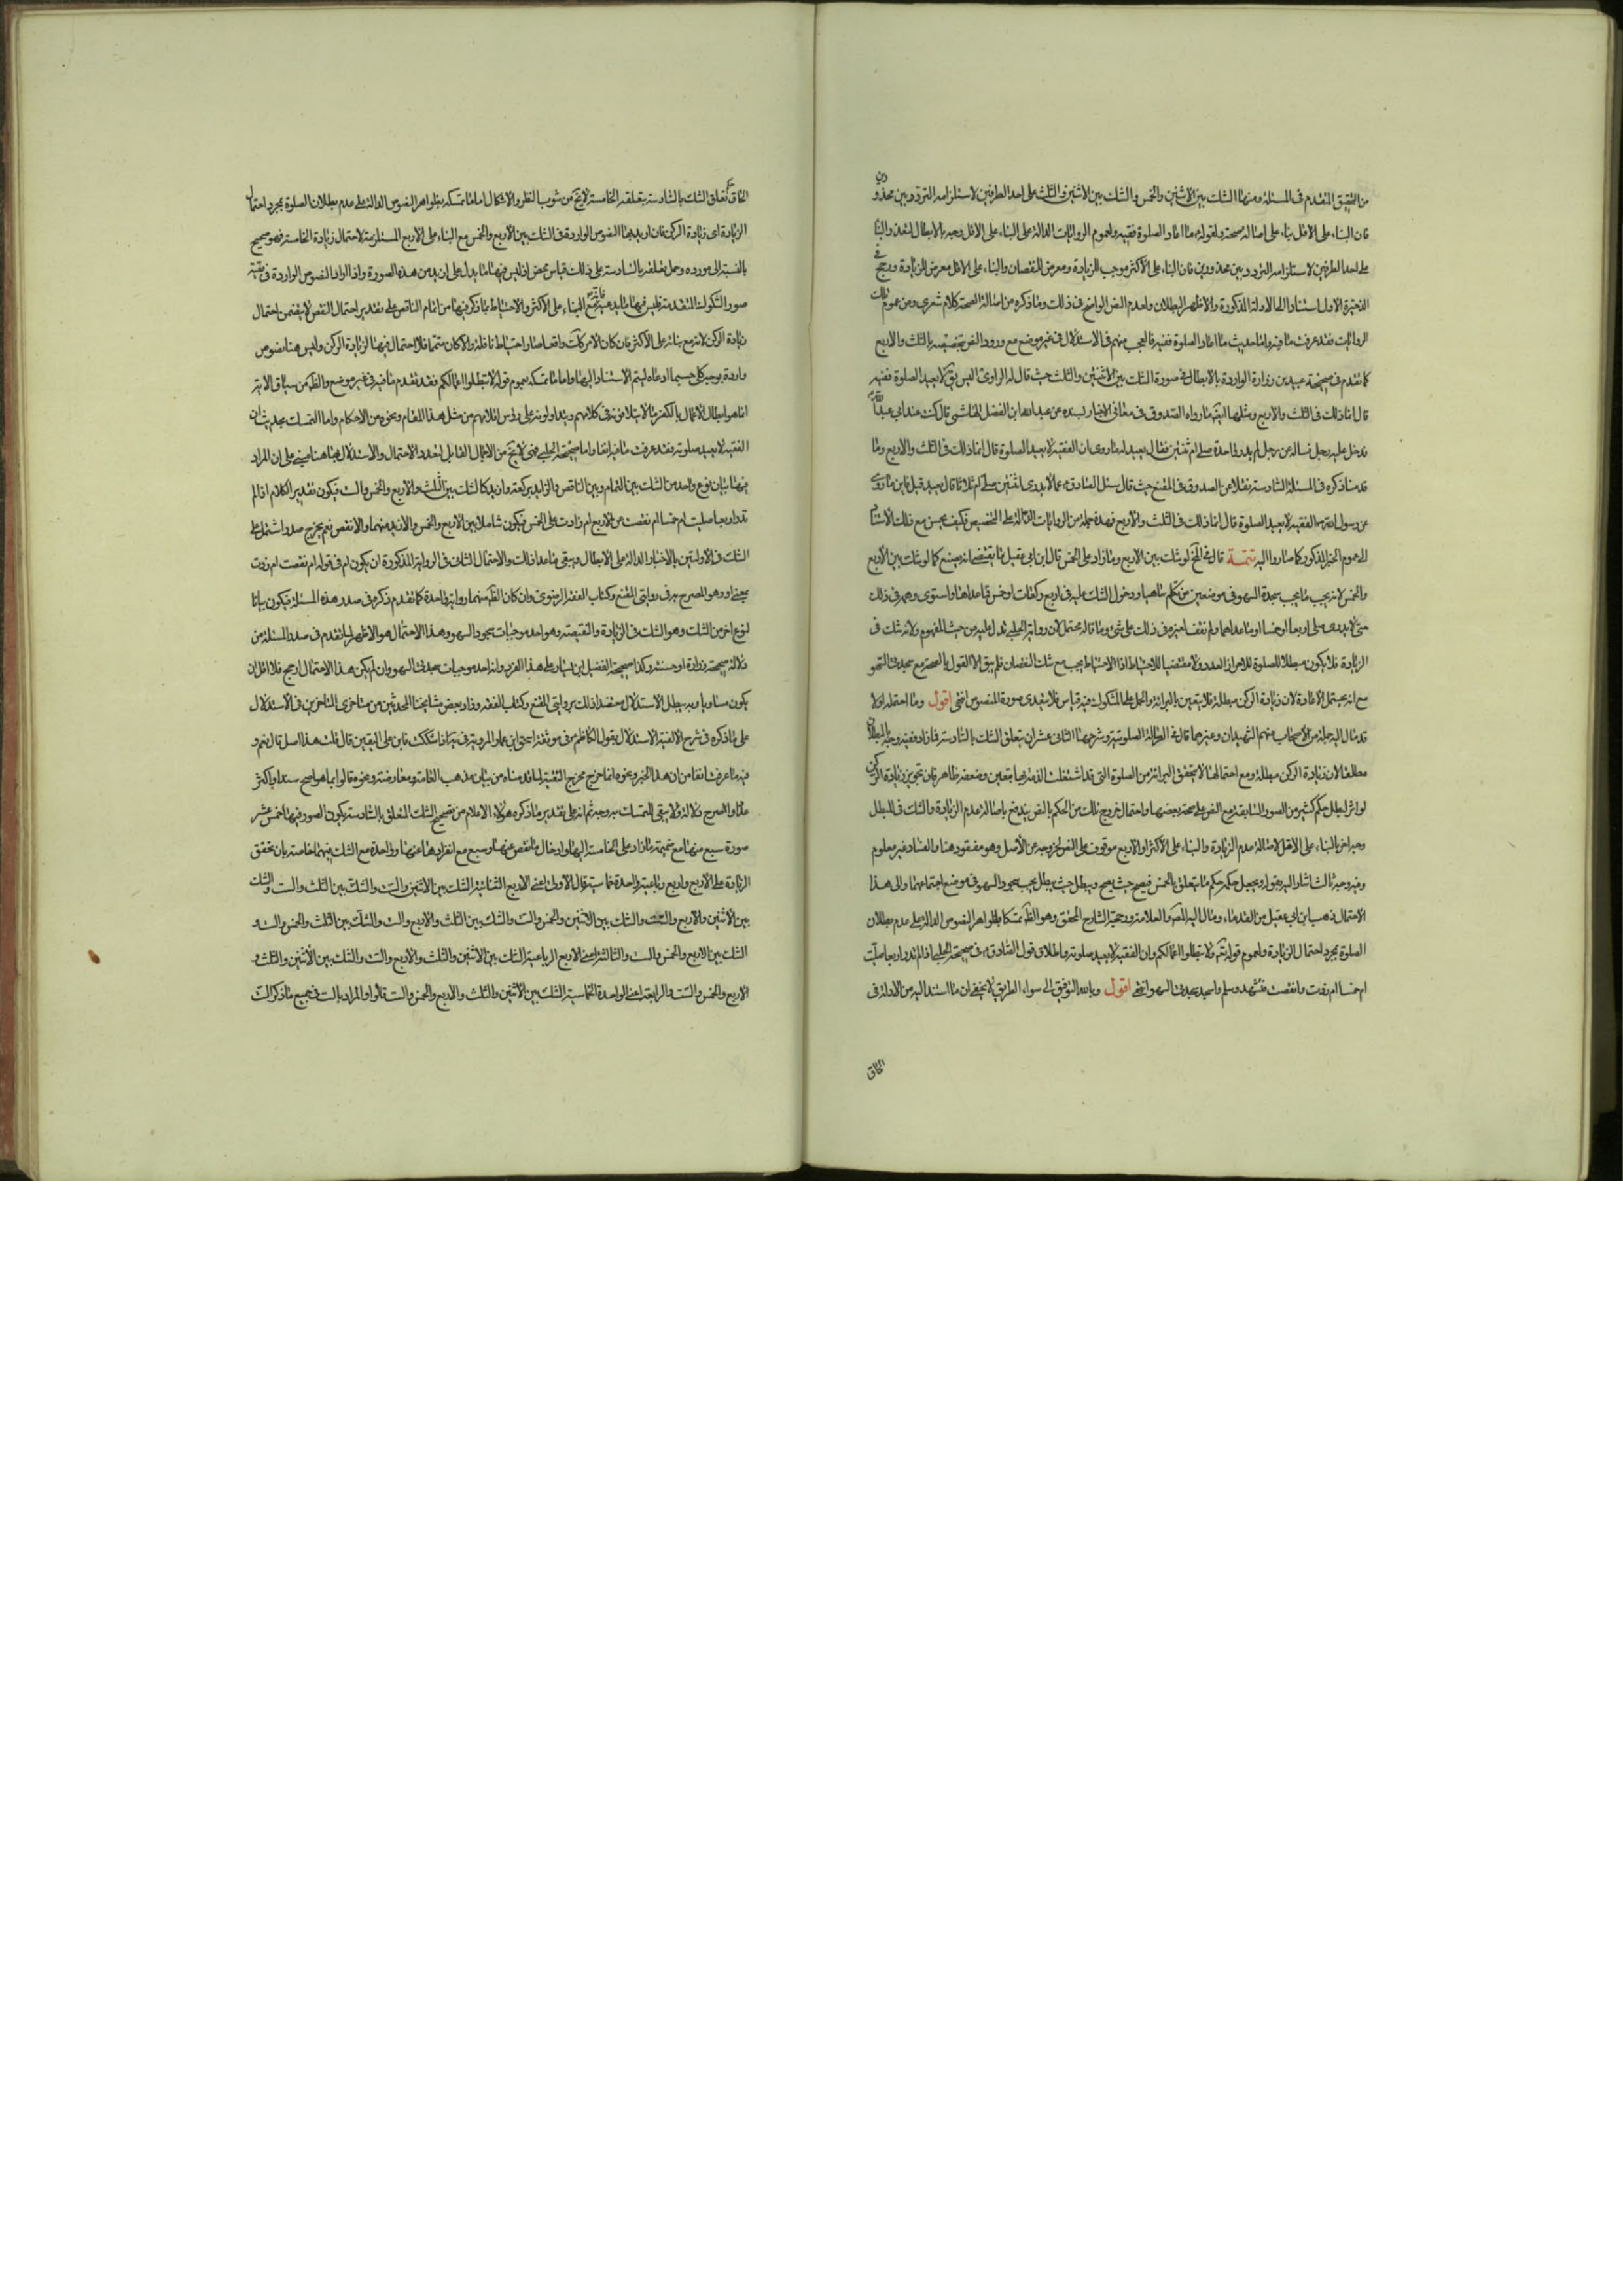 من التحقيق المتقدم في المسئلة ومنها الشك بين الاثنين والخمس والشك بين الاثنين والثلث على احد الطرفين لاستلزامه التردد بين محذورين
فان البناء على الاقل بناء على اصالة صحته ولقوله ما اعاد الصلوة فقيه ولعموم الروايات الدالة على البناء على الاقل وجه بالابطال لتعذر البناء
على احد الطرفين لاستلزامه التردد بين محذورين فان البناء على الاكثر موجب للزيادة ومعرض النقصان والبناء على الاقل معرض الزيادة ورجح في
الذخيرة الاول استنادا الى الادلة المذكورة والاظهر البطلان لعدم النص الواضح في ذلك وما ذكره من اصالة الصحة كلام شعرى ومن عموم تلك
الروايات فقد عرفت ما فيه واما حديث ما اعاد الصلوة فقيه فالعجب منهم في الاستدلال في غير موضع مع ورود النص بتخصيصه بالثلث والاربع
كما تقدم في صحيحة عبيد بن زرارة الواردة بالابطال في صورة الشك بين الاثنتين والثلث حيث قال له الراوى اليس يق لا يعيد الصلوة فقيه
قال انما ذلك في الثلث والاربع ومثلها ايضا ما رواه الصدوق في معانى الاخبار بسنده عن عبد الله ابن الفضل الهاشمى قال كنت عند ابى عبد الله
فدخل عليه رجل فساله عن رجل لم يدر واحدة صلى ام ثنتين فقال يعيد له ما روى ان الفقيه لا يعيد الصلوة قال انما ذلك في الثلث والاربع وما
قدمنا ذكره في المسئلة السادسة نقلا عن الصدوق في المقنع حيث قال سئل الصادق عمن لا يدرى اثنتين صلى ام ثلاثا قال يعيد قيل فاين ما روى
عن رسول الله الفقيه لا يعيد الصلوة قال انما ذلك في الثلث والاربع فهذه جملة من الروايات الدالة على التخصيص فكيف يحسن مع ذلك الاستناد
الى عموم الخبر المذكور كما صاروا اليه تتمة قال في المخ لو شك بين الاربع وما زاد على الخمس قال ابن ابى عقيل ما يقتضى انه يصنع كما لو شك بين الاربع
والخمس لانه يجب ما يجب سجدة السهو في موضعين من تكلم ساهيا ودخول الشك عليه في اربع ركعات او خمس فما عداها واستوى وهمه في ذلك
حتى لا يدرى صلى اربعا او خمسا او ما عداهما ولم نقف لغيره في ذلك على شئ وما قاله محتمل لان رواية الحلبى تدل عليه من حيث المفهوم ولانه شك في
الزيادة فلا يكون مبطلا للصلوة للاحراز العدد ولا مقتضيا للاحتياط اذ الاحتياط يجب مع شك النقصان فلم يبق الا القول بالصحة مع سجدتى السهو
مع انه يحتمل الاعادة لان زيادة الركن مبطلة فلا يتعين بالبرائة والحمل على المشكوك فيه قياس فلا يتعدى صورة المنصوص انتهى اقول وما احتمله اولا
قد مال اليه جملة من الاصحاب منهم الشهيدان وغيرهما قال في الرسالة الصلوتية وشرحها الثانى عشر ان يتعلق الشك بالسادسة فما زاد ففيه وجه بالبطلان
مطلقا لان زيادة الركن مبطلة ومع احتمالها لا يتحقق البرائة من الصلوة التى قد اشتغلت الذمة بها بيقين وضعفه ظاهر فان تجويز زيادة الركن
لو اثر لبطل حكم كثير من الصور السابقة مع النص على صحة بعضها واحتمال خروج تلك من الحكم بالنص يندفع باصالة عدم الزيادة والشك في المبطل
وجه اخر بالبناء على الاقل لاصالة عدم الزيادة والبناء على الاكثر او الاربع موقوف على النص لخروجه عن الاصل وهو مفقود هنا والفساد غير معلوم
وفيه وجه ثالث اشار اليه بقوله ويجعل حكمه حكم ما يتعلق بالخمس فيصح حيث يصح ويبطل حيث يبطل يجب سجود السهو في موضع اجتماعها والى هذا
الاحتمال ذهب ابن ابى عقيل من القدماء ومال اليه المص والعلامة ورجحه الشارح المحقق وهو الظ تمسكا بظواهر النصوص الدالة على عدم بطلان
الصلوة بمجرد احتمال الزيادة ولعموم قوله تعم ولا تبطلوا اعمالكم وان الفقيه لا يعيد صلوته واطلاق قول الصادق في صحيحة الحلبى اذا لم تدر اربعا صليت
ام خمسا ام زدت ام نقصت فتشهد وسلم واسجد سجدتى السهو انتهى اقول وبالله التوفيق الى سواء الطريق لا يخفى ان ما استند اليه من الادلة في
الحاق
الحاق حكم تعلق الشك بالسادسة بتعلقه بالخامسة لا يخ من شوب النظر والاشكال اما ما تمسك به بظواهر النصوص الدالة على عدم بطلان الصلوة بمجرد احتمال
الزيادة اى زيادة الركن فان اريد بها النصوص الواردة في الشك بين الاربع والخمس مع البناء على الاربع المستلزمة لاحتمال زيادة الخامسة فهو صحيح
بالنسبة الى مورده وحمل ما تعلق بالسادسة على ذلك قياس محض اذ ليس فيها ما يدل على ازيد من هذه الصورة واذا اراد النصوص الواردة في بقية
صور الشكوك المتقدمة فليس فيها ما يدعيه فانه مع البناء على الاكثر والاحتياط بما ذكر فيها من اتمام الناقص على تقدير احتمال النقص لا يتضمن احتمال
زيادة الركن لانه مع بنائه على الاكثر فان كان الامر كذلك واقعا صار احتياط نافلة والا كان متمما فلا احتمال فيها لزيادة الركن وليس هنا نصوص
واردة بوجه كلى حسبما ادعاه ليتم الاستناد اليها واما ما تمسك به بعموم قوله لا تبطلوا اعمالكم فقد تقدم ما فيه في غير موضع والظ من سياق الاية
انما هو ابطال الاعمال بالكفر
الفقيه لا يعيد صلوته فقد عرفت ما فيه انفا واما صحيحة الحلبى فهى لا تخ من الاجمال القابل لتعدد الاحتمال والاستدلال بها هنا مبنى على ان المراد
فيها بيان نوع واحد من الشك بين التمام وبين الناقص والزايد بركعة وازيد كالشك بين الثلث والاربع والخمس والست فيكون تقدير الكلام اذا لم
تدر اربعا صليت ام خمسا ام نقصت عن الاربع ام زادت على الخمس فيكون شاملا بين الاربع والخمس والازيد منهما والانقص نعم يخرج صدر ما اشتمل على
الشك في الاولتين بالاخبار الدالة على الابطال ويبقى ما عدا ذلك والاحتمال الثانى في الرواية المذكورة ان يكون ام في قوله ام نقصت ام زدت
بمعنى او وهو المصرح به في روايتى المقنع وكتاب الفقه الرضوى وان كان الظ منهما رواية واحدة كما تقدم ذكره في صدر هذه المسئلة فيكون بيانا
لنوع اخر من الشك وهو الشك في الزيادة والنقيصة وهو احد موجبات سجود السهو وهذا الاحتمال هو الاظهر لما تقدم في صدر المسئلة من
دلالة صحيحة زرارة او حسنته وكذا صحيحة الفضيل ابن يسار على هذا الفرد وانه احد موجبات سجدتى السهو وان لم يكن هذا الاحتمال ارجح فلا اقل ان
يكون مساويا وبه يبطل الاستدلال معتضدا ذلك بروايتى المقنع وكتاب الفقه وزاد بعض مشايخنا المحدثين من متاخرى المتاخرين في الاستدلال
على ما ذكره في شرح الالفية الاستدلال بقول الكاظم في موثقة اسحق ابن عمار المروية في يه اذا شككت فابن على اليقين قال قلت هذا اصل قال نعم و
فيه ما عرفت انفا من ان هذا الخبر ونحوه انما خرج مخرج التقية لما قدمناه من بيان مذهب العامة ومعارضته ونحوه قالوا بما هو اصح سندا واكثر
عددا واصرح دلالة ولا يبقى التمسك به وجه ثم انه على تقدير ما ذكره هؤلاء الاعلام من تصحيح الشك المتعلق بالسادسة يكون الصور فيها خمس عشر
صورة سبع منها مع ضميمة ما زاد على الخامسة اليها وادخال ما نقص عنها وسبع مع انفرادها عنها وواحدة مع الشك فيهما خاصة بان تحقق
الزيادة على الاربع واربع رباعية وواحدة خماسية قال الاولى اعنى الاربع الثنائية الشك بين الاثنين والست والشك بين الثلث والست والشك
بين الاثنين والاربع والست والشك بين الاثنين والخمس والست والشك بين الثلث والاربع والست والشك بين الثلث والخمس والست و
الشك بين الاربع والخمس والست والثالثة اعنى الاربع الرباعية الشك بين الاثنين والثلث والاربع والست والشك بين الاثنين والثلث و
الاربع والخمس والست والرابعة اعنى الواحدة الخماسية الشك بين الاثنين والثلث والاربع والخمس والست قالوا والمراد بالست في جميع ما ذكر الست